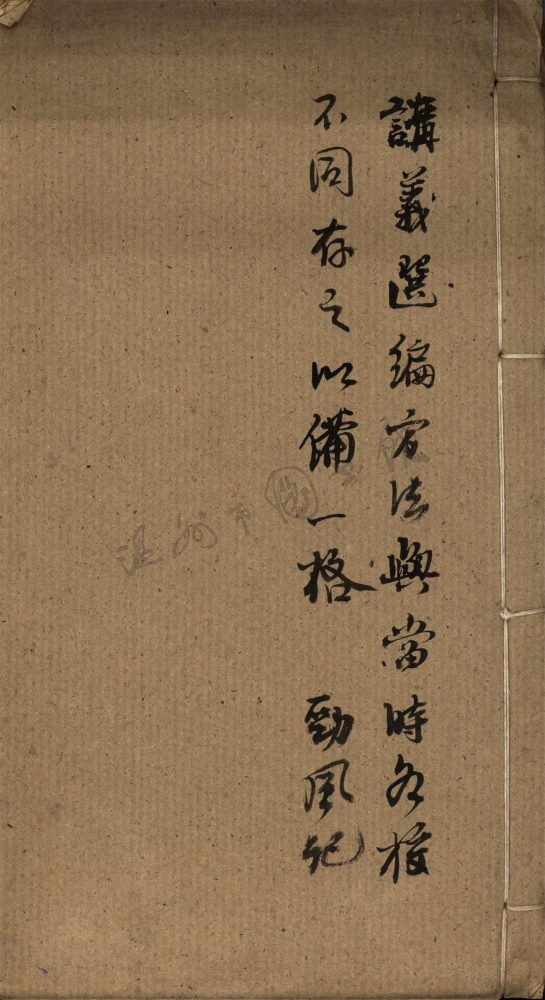 講義選編方法與當時各校
不同存之以備一格 勁風記
温州市图